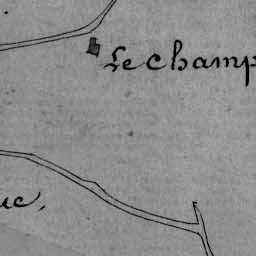 Le Champ
uc,